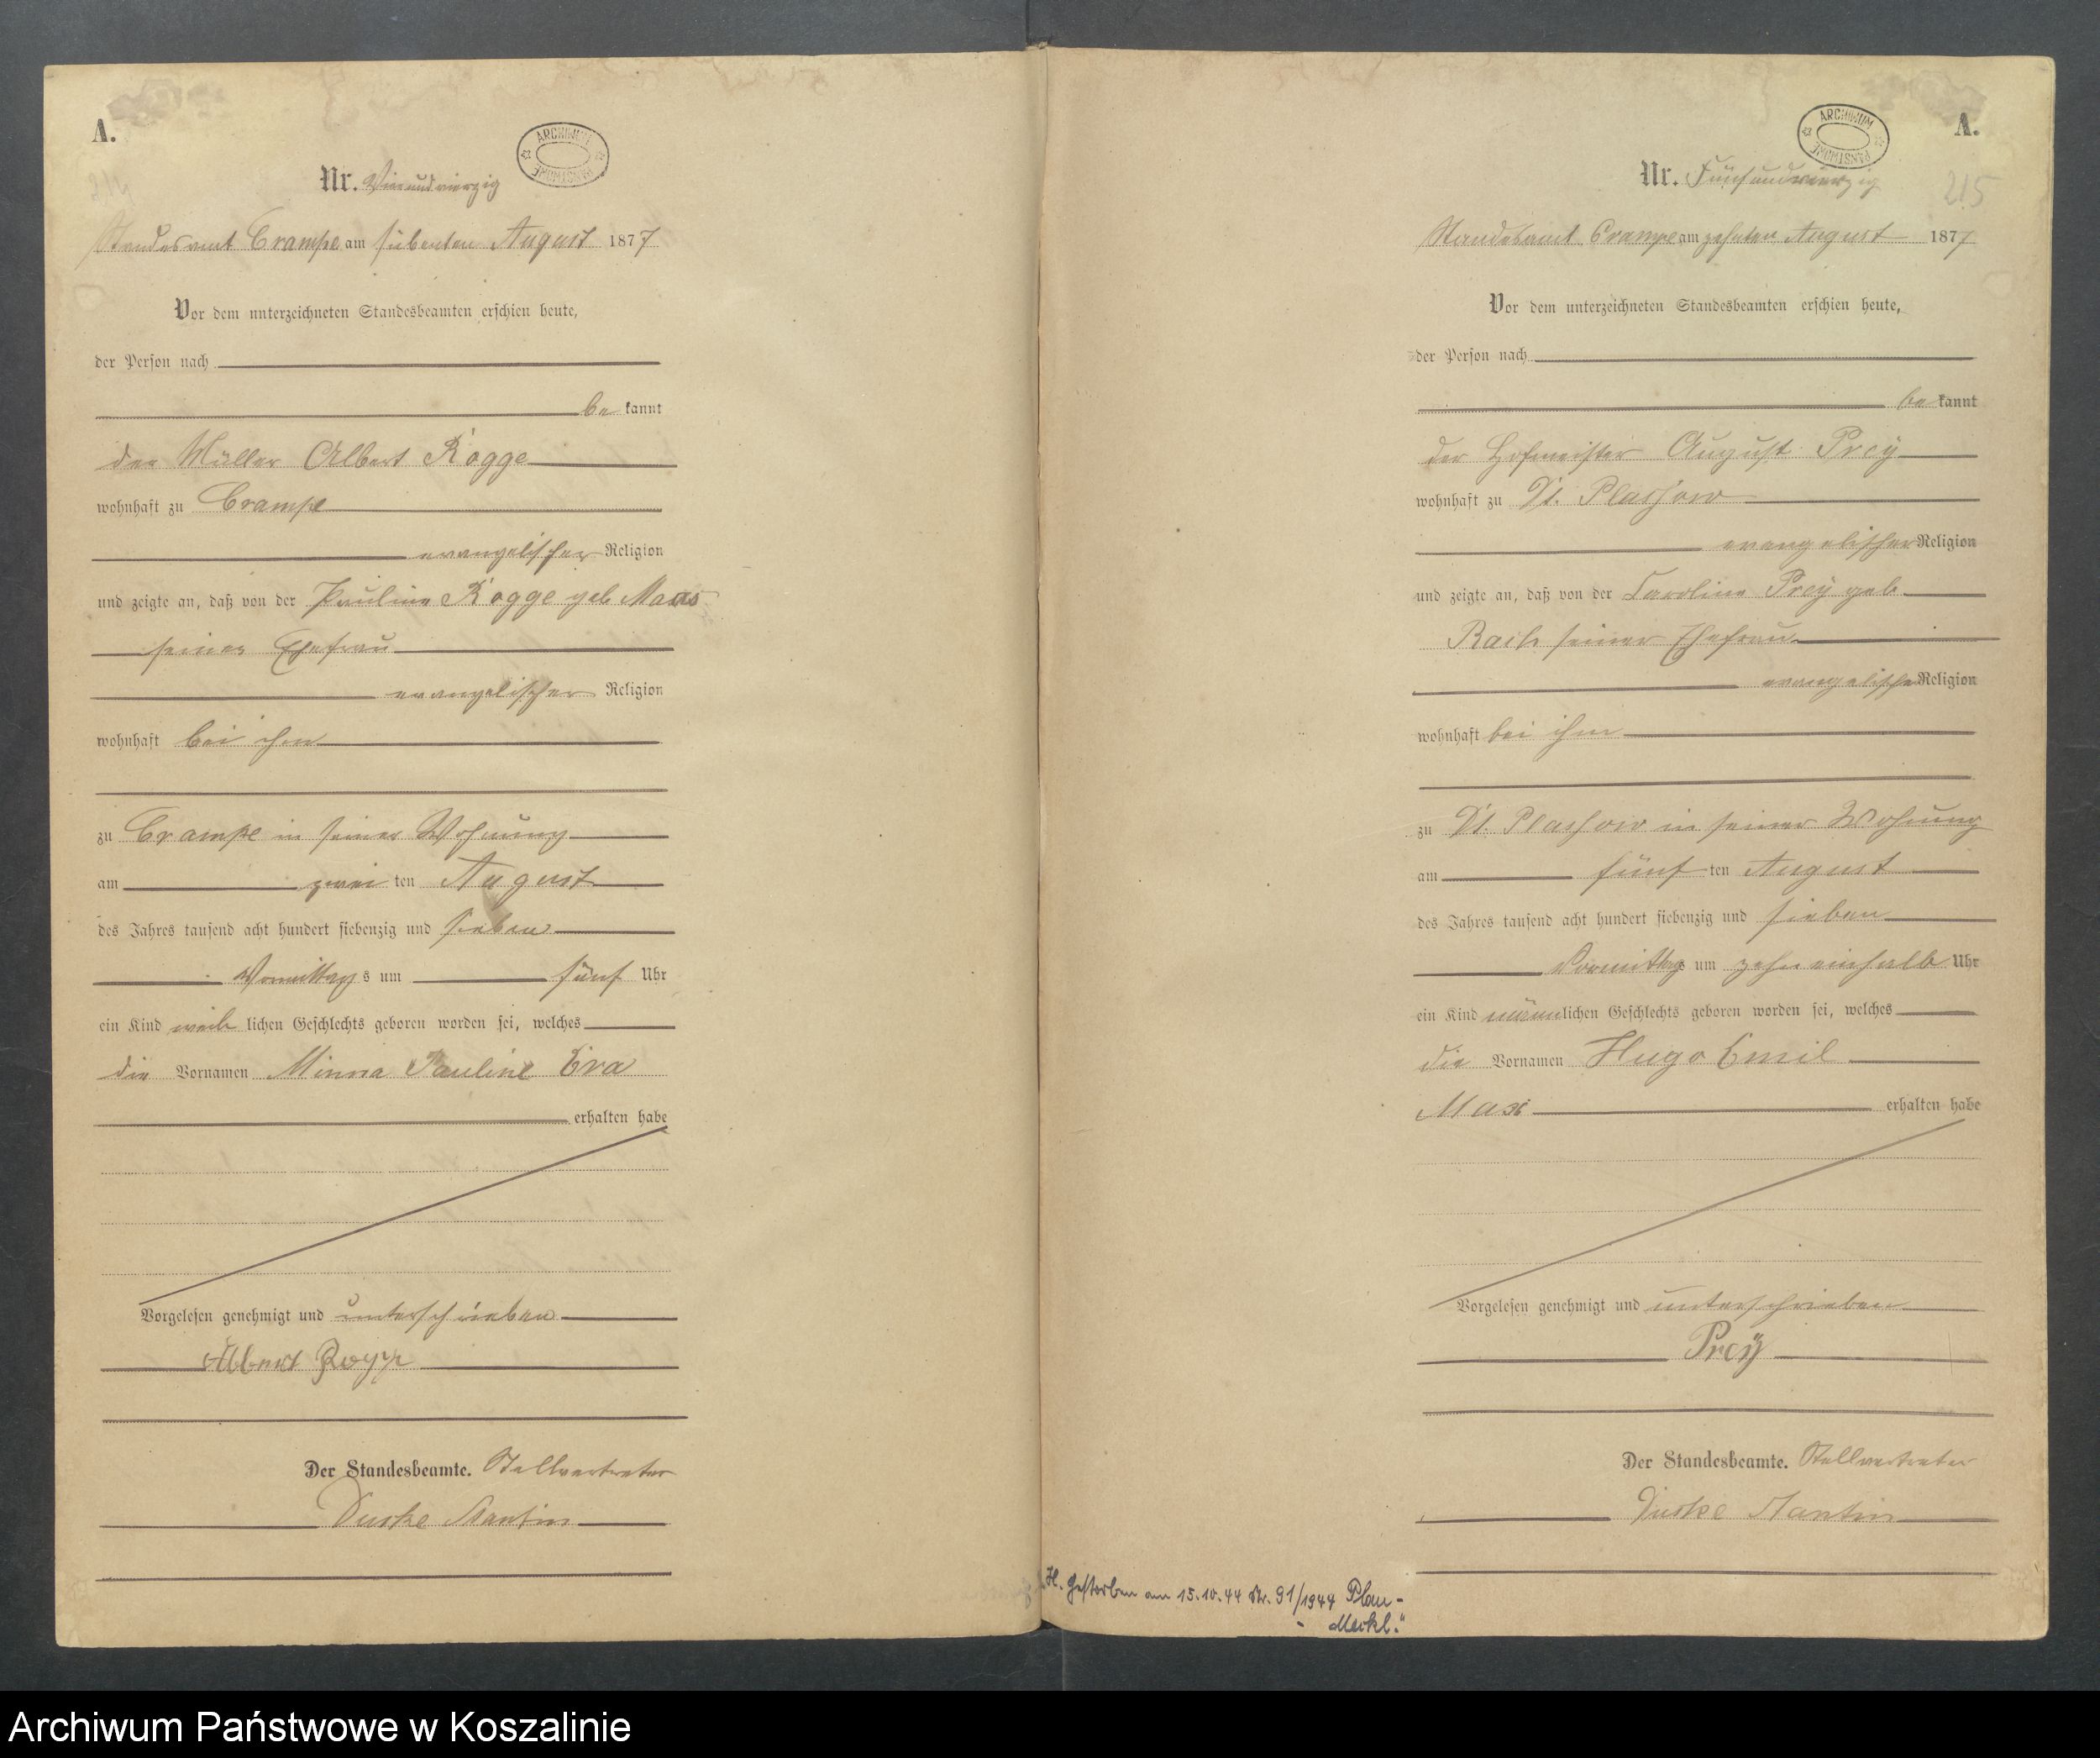 A.
ARCHIWUM PAŃSTWOWE
Nr. Vierundvierzig
Standesamt Crampe am siebenten August 1877
Vor dem unterzeichneten Standesbeamten erschien heute,
der Person nach
be kannt
der Müller Albert Rogge
wohnhaft zu Crampe
evangelischer Religion
und zeigte an, daß von der Pauline Rogge geb Maas
seiner Ehefrau
evangelischer Religion
wohnhaft bei ihm
zu Crampe in seiner Wohnung
am zwei ten August
des Jahres tausend acht hundert siebenzig und sieben
Vormittags um fünf Uhr
ein Kind weib lichen Geschlechts geboren worden sei, welches
die Vornamen Minna Pauline Eva
erhalten habe
Vorgelesen genehmigt und unterschrieben
Albert Rogge
Der Standesbeamte. Stellvertreter
Duske
A.
ARCHIWUM PAŃSTWOWE
Nr. Fünfundvierzig
215
Standesamt Crampe am zehnten August 1877
Vor dem unterzeichneten Standesbeamten erschien heute,
der Person nach
be kannt
der Hofmeister August Preÿ
wohnhaft zu Dt. Plassow
evangelischer Religion
und zeigte an, daß von der Caroline Preÿ geb
seiner Ehefrau
evangelischer Religion
wohnhaft bei ihm
zu Dt. Plassow in seiner Wohnung
am fünf ten August
des Jahres tausend acht hundert siebenzig und sieben
Vormittags um zehn einhalb Uhr
ein Kind männlichen Geschlechts geboren worden sei, welches
die Vornamen Hugo Emil
Max erhalten habe
Vorgelesen genehmigt und unterschrieben
Preÿ
Der Standesbeamte. Stellvertreter
Duske
„H. gestorben am 15.10.44 Nr. 91/1944 Plau-
- Meckl."
Archiwum Państwowe w Koszalinie